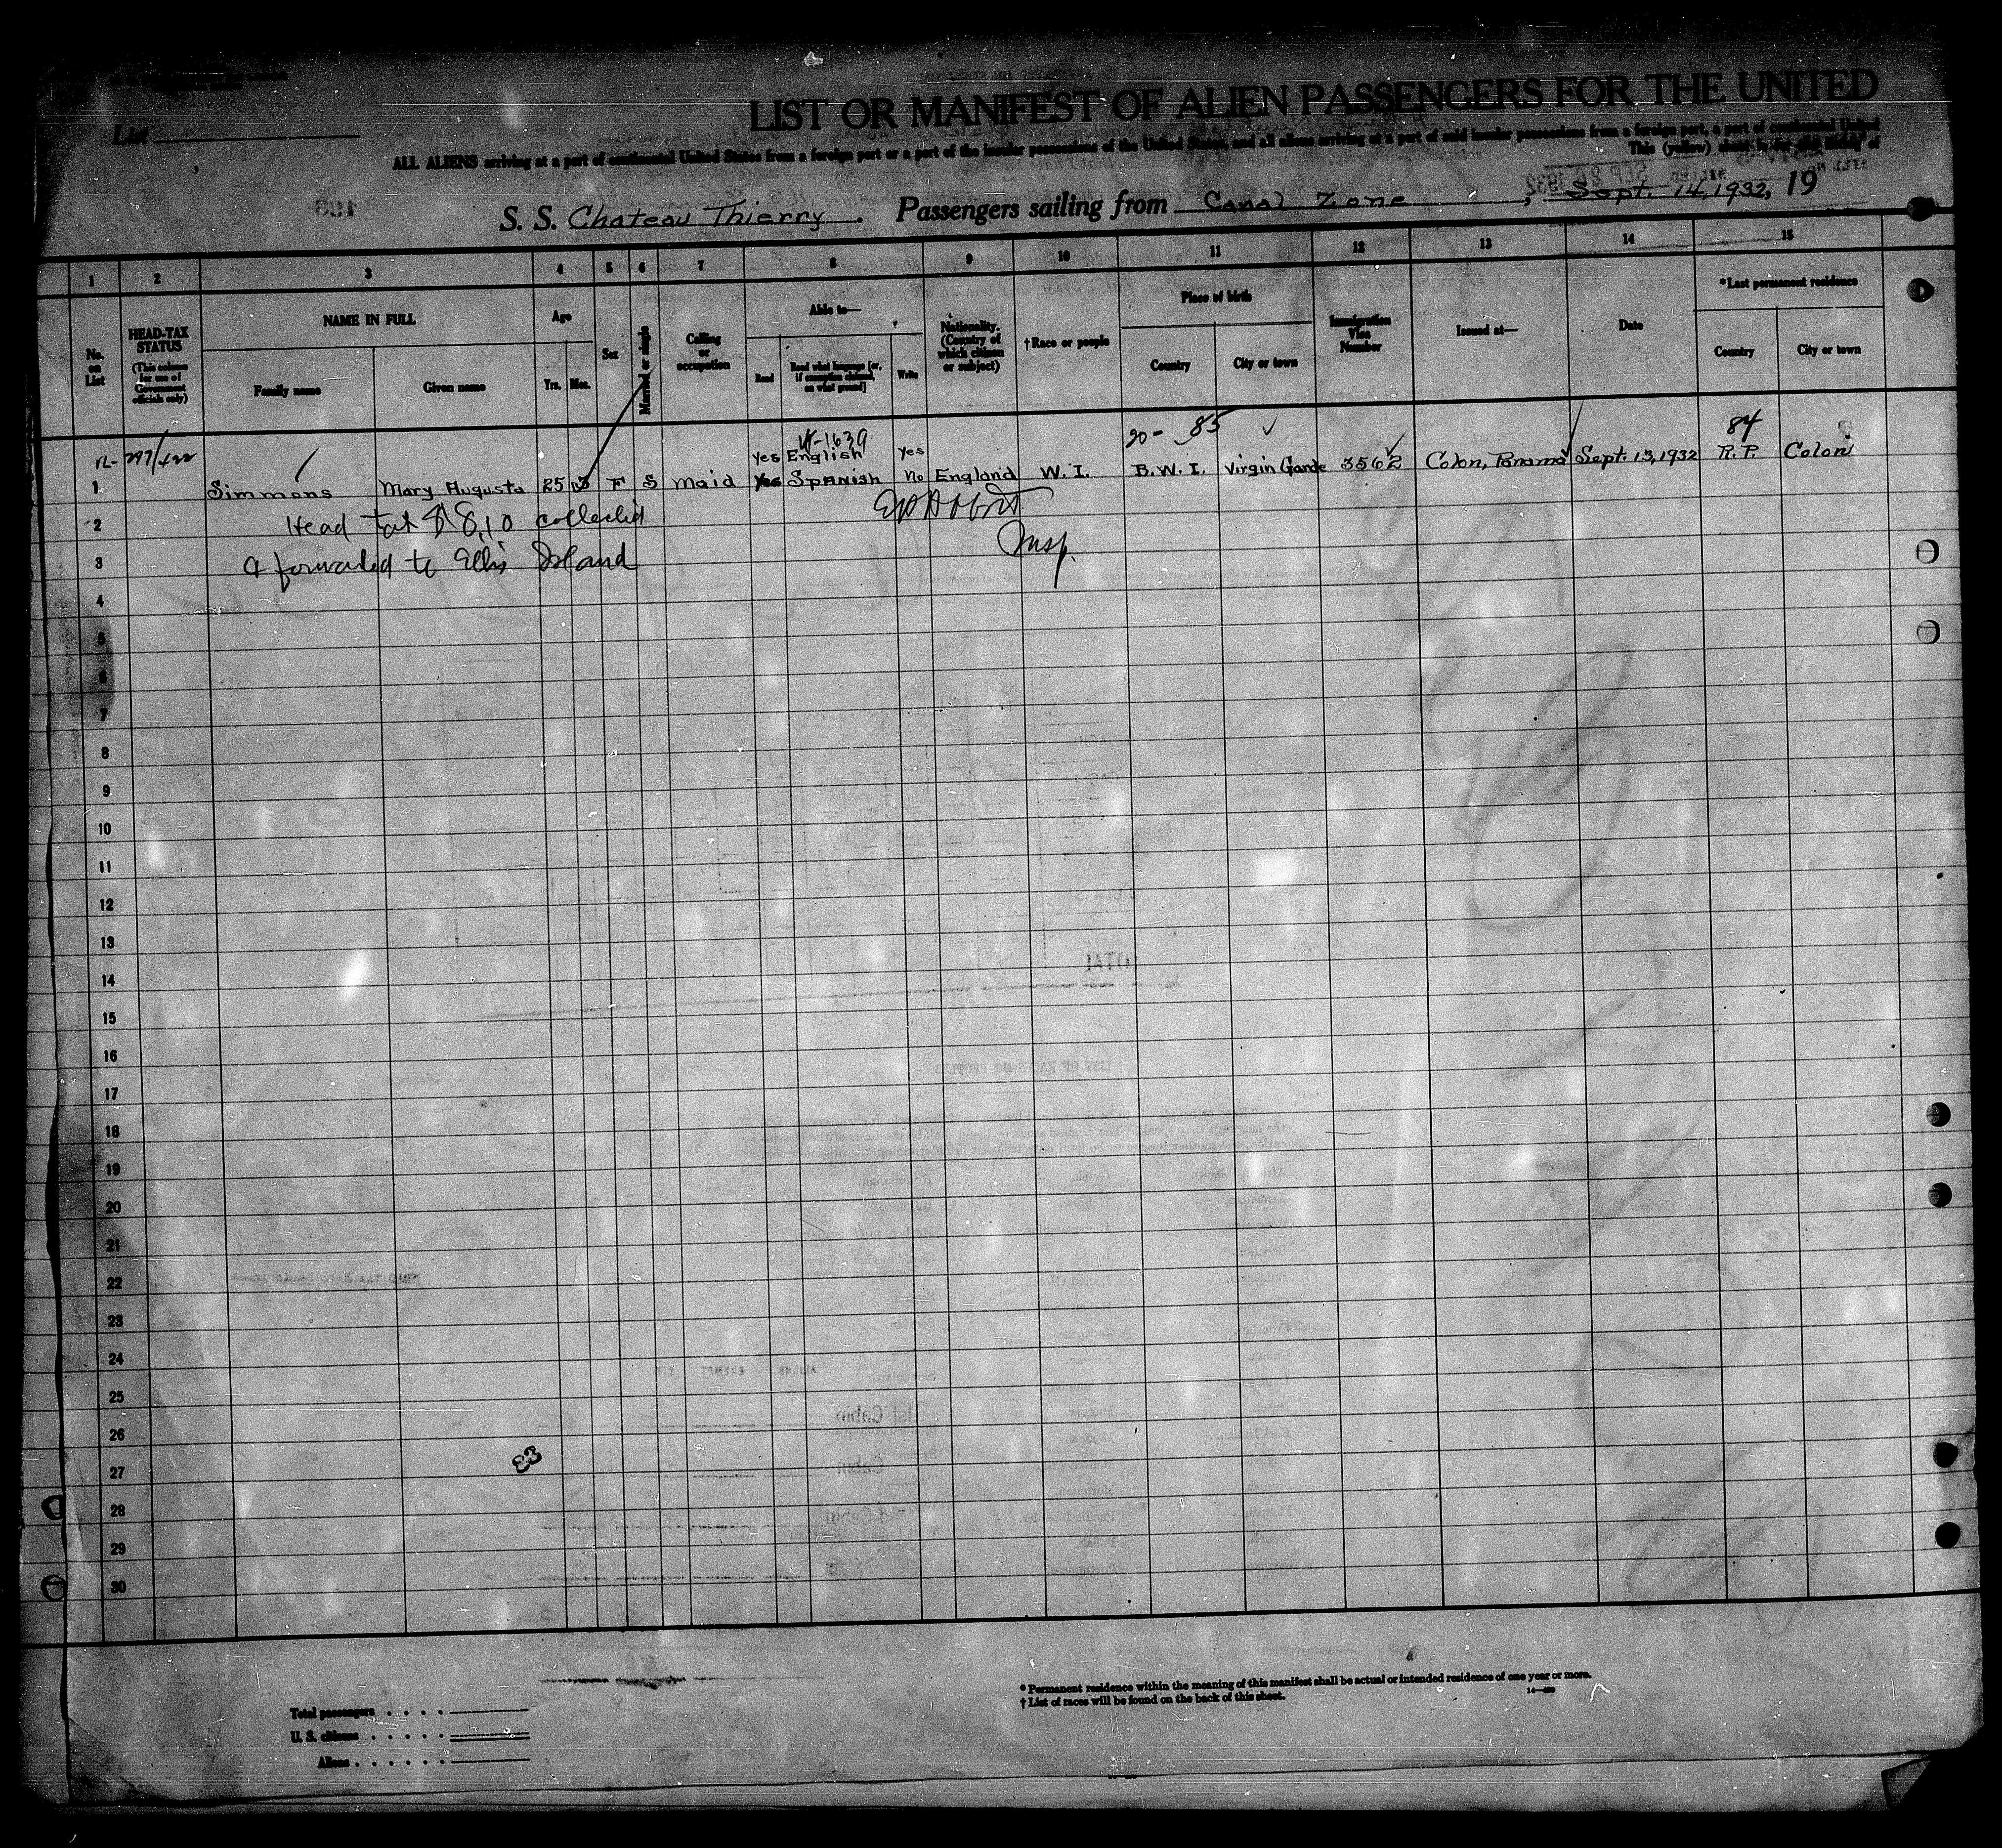 LIST OR MANIFEST OF ALIEN PASSENGERS FOR THE UNITED
List
ALL ALIENS arriving at a port of continental United States from a foreign port or a port of the insular possessions of the United States, and all aliens arriving at a port of said insular possessions from a foreign port, a port of continental United
This (yellow) sheet is for the
S. S. Chateau Thierry. Passengers sailing from Canal Zone, Sept. 14, 1932, 19
1 2 3 4 5 6 7 8 9 10 11 12 13 14 15
No. on List
HEAD-TAX STATUS (This column for use of Government officials only)
NAME IN FULL
Family name Given name
Age
Yrs. Mos.
Sex
Married or single
Calling or occupation
Able to—
Read Read what language [or, if exemption claimed, on what ground] Write
Nationality. (Country of which citizen or subject)
†Race or people
Place of birth
Country City or town
Immigration Visa Number
Issued at—
Date
*Last permanent residence
Country City or town
20- 85 84
Yes English Yes
1 Simmons Mary Augusta 25 F S Maid Yes Spanish No England W. I. B. W. I. Virgin Gorde 3562 Colon, Panama Sept. 13, 1932 R. P. Colon
2 Head tax $8.10 collected
3 & forwarded to Ellis Island Insp.
4
5
6
7
8
9
10
11
12
13
14
15
16
17
18
19
20
21
22
23
24
25
26
27
28
29
30
33
* Permanent residence within the meaning of this manifest shall be actual or intended residence of one year or more.
† List of races will be found on the back of this sheet.
Total passengers
U. S. citizens
Aliens